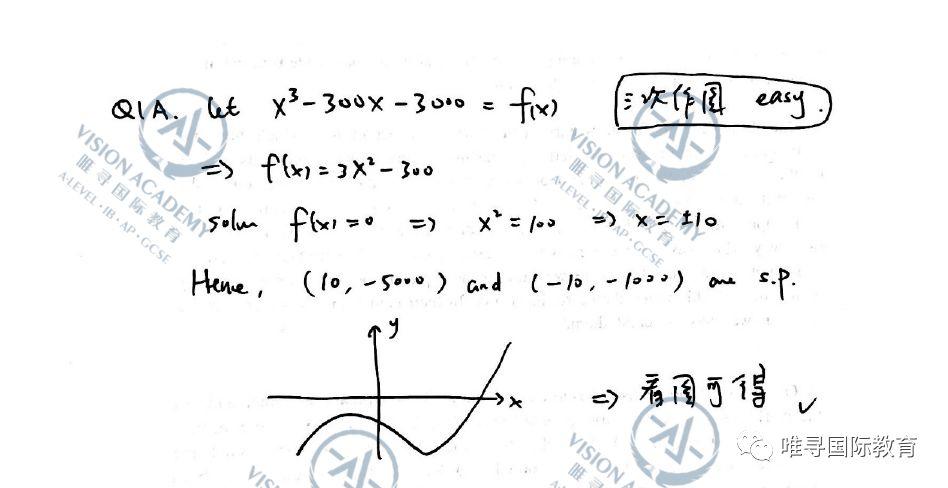 Q1A. Let x³-300x-3000 = f(x)
三次作图 easy.
=> f'(x) = 3x²-300
solve f'(x) = 0 => x² = 100 => x = ±10
Hence, (10, -5000) and (-10, -1000) are s.p.
y
x
=> 看图可得 ✓
VISION ACADEMY
唯寻国际教育
A-LEVEL·IB·AP·GCSE
VISION ACADEMY
唯寻国际教育
A-LEVEL·IB·AP·GCSE
唯寻国际教育